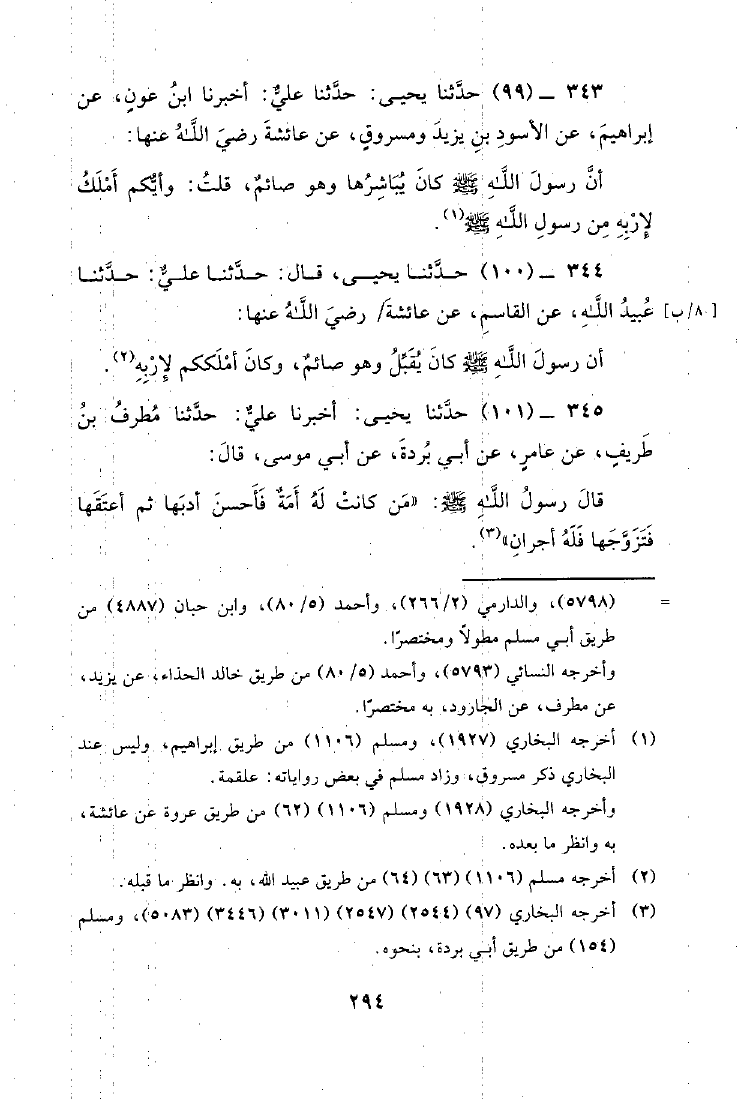 ٣٤٣ ــ (٩٩) حدَّثنا يحيـى: حدَّثنا عليٌّ: أخبرنا ابنُ عونٍ، عن
إبراهيمَ، عن الأسودِ بنِ يزيدَ ومسروقٍ، عن عائشةَ رضيَ اللَّـهُ عنها:
أنَّ رسولَ اللَّـهِ ﷺ كانَ يُبَاشِرُها وهو صائمٌ، قلتُ: وأيُّكم أَمْلَكُ
لِإرْبِهِ مِن رسولِ اللَّـهِ ﷺ(١).
٣٤٤ ــ (١٠٠) حـدَّثنـا يحيـى، قـال: حـدَّثنـا علـيٌّ: حـدَّثنـا
[٨٠/ب] عُبيدُ اللَّـهِ، عن القاسمِ، عن عائشةَ/ رضيَ اللَّـهُ عنها:
أن رسولَ اللَّـهِ ﷺ كانَ يُقبِّلُ وهو صائمٌ، وكانَ أمْلَككم لِإرْبِهِ(٢).
٣٤٥ ــ (١٠١) حدَّثنا يحيـى: أخبرنا عليٌّ: حدَّثنا مُطرفُ بنُ
طَريفٍ، عن عامرٍ، عن أبـي بُردةَ، عن أبـي موسى، قالَ:
قالَ رسولُ اللَّـهِ ﷺ: «مَن كانتْ لَهُ أَمَةٌ فَأَحسنَ أدبَها ثم أعتَقَها
فَتَزوَّجَها فَلَهُ أجرانِ»(٣).
= (٥٧٩٨)، والدارمي (٢/٢٦٦)، وأحمد (٥/ ٨٠)، وابن حبان (٤٨٨٧) من
طريق أبـي مسلم مطولاً ومختصرًا.
وأخرجه النسائي (٥٧٩٣)، وأحمد (٥/ ٨٠) من طريق خالد الحذاء، عن يزيد،
عن مطرف، عن الجارود، به مختصرًا.
(١) أخرجه البخاري (١٩٢٧)، ومسلم (١١٠٦) من طريق إبراهيم، وليس عند
البخاري ذكر مسروق، وزاد مسلم في بعض رواياته: علقمة.
وأخرجه البخاري (١٩٢٨) ومسلم (١١٠٦) (٦٢) من طريق عروة عن عائشة،
به وانظر ما بعده.
(٢) أخرجه مسلم (١١٠٦) (٦٣) (٦٤) من طريق عبيد الله، به. وانظر ما قبله.
(٣) أخرجه البخاري (٩٧) (٢٥٤٤) (٢٥٤٧) (٣٠١١) (٣٤٤٦) (٥٠٨٣)، ومسلم
(١٥٤) من طريق أبـي بردة، بنحوه.
٢٩٤